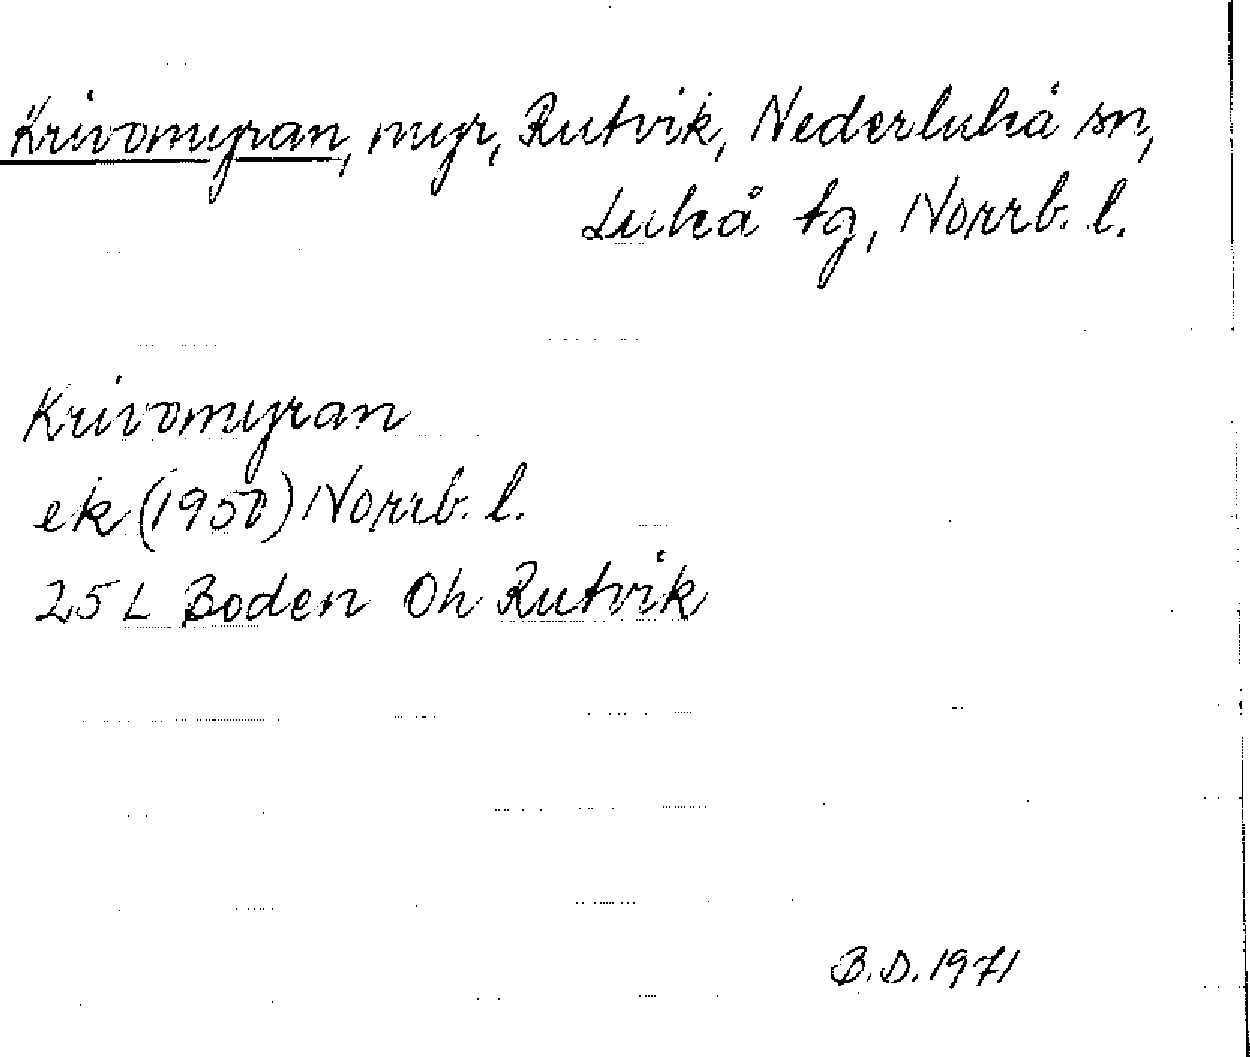 Krivomyran, myr, Rutvik, Nederluleå sn,
Luleå tg, Norrb. l.
Krivomyran
ek (1950) Norrb. l.
25 L Boden Oh Rutvik
B.D. 1971